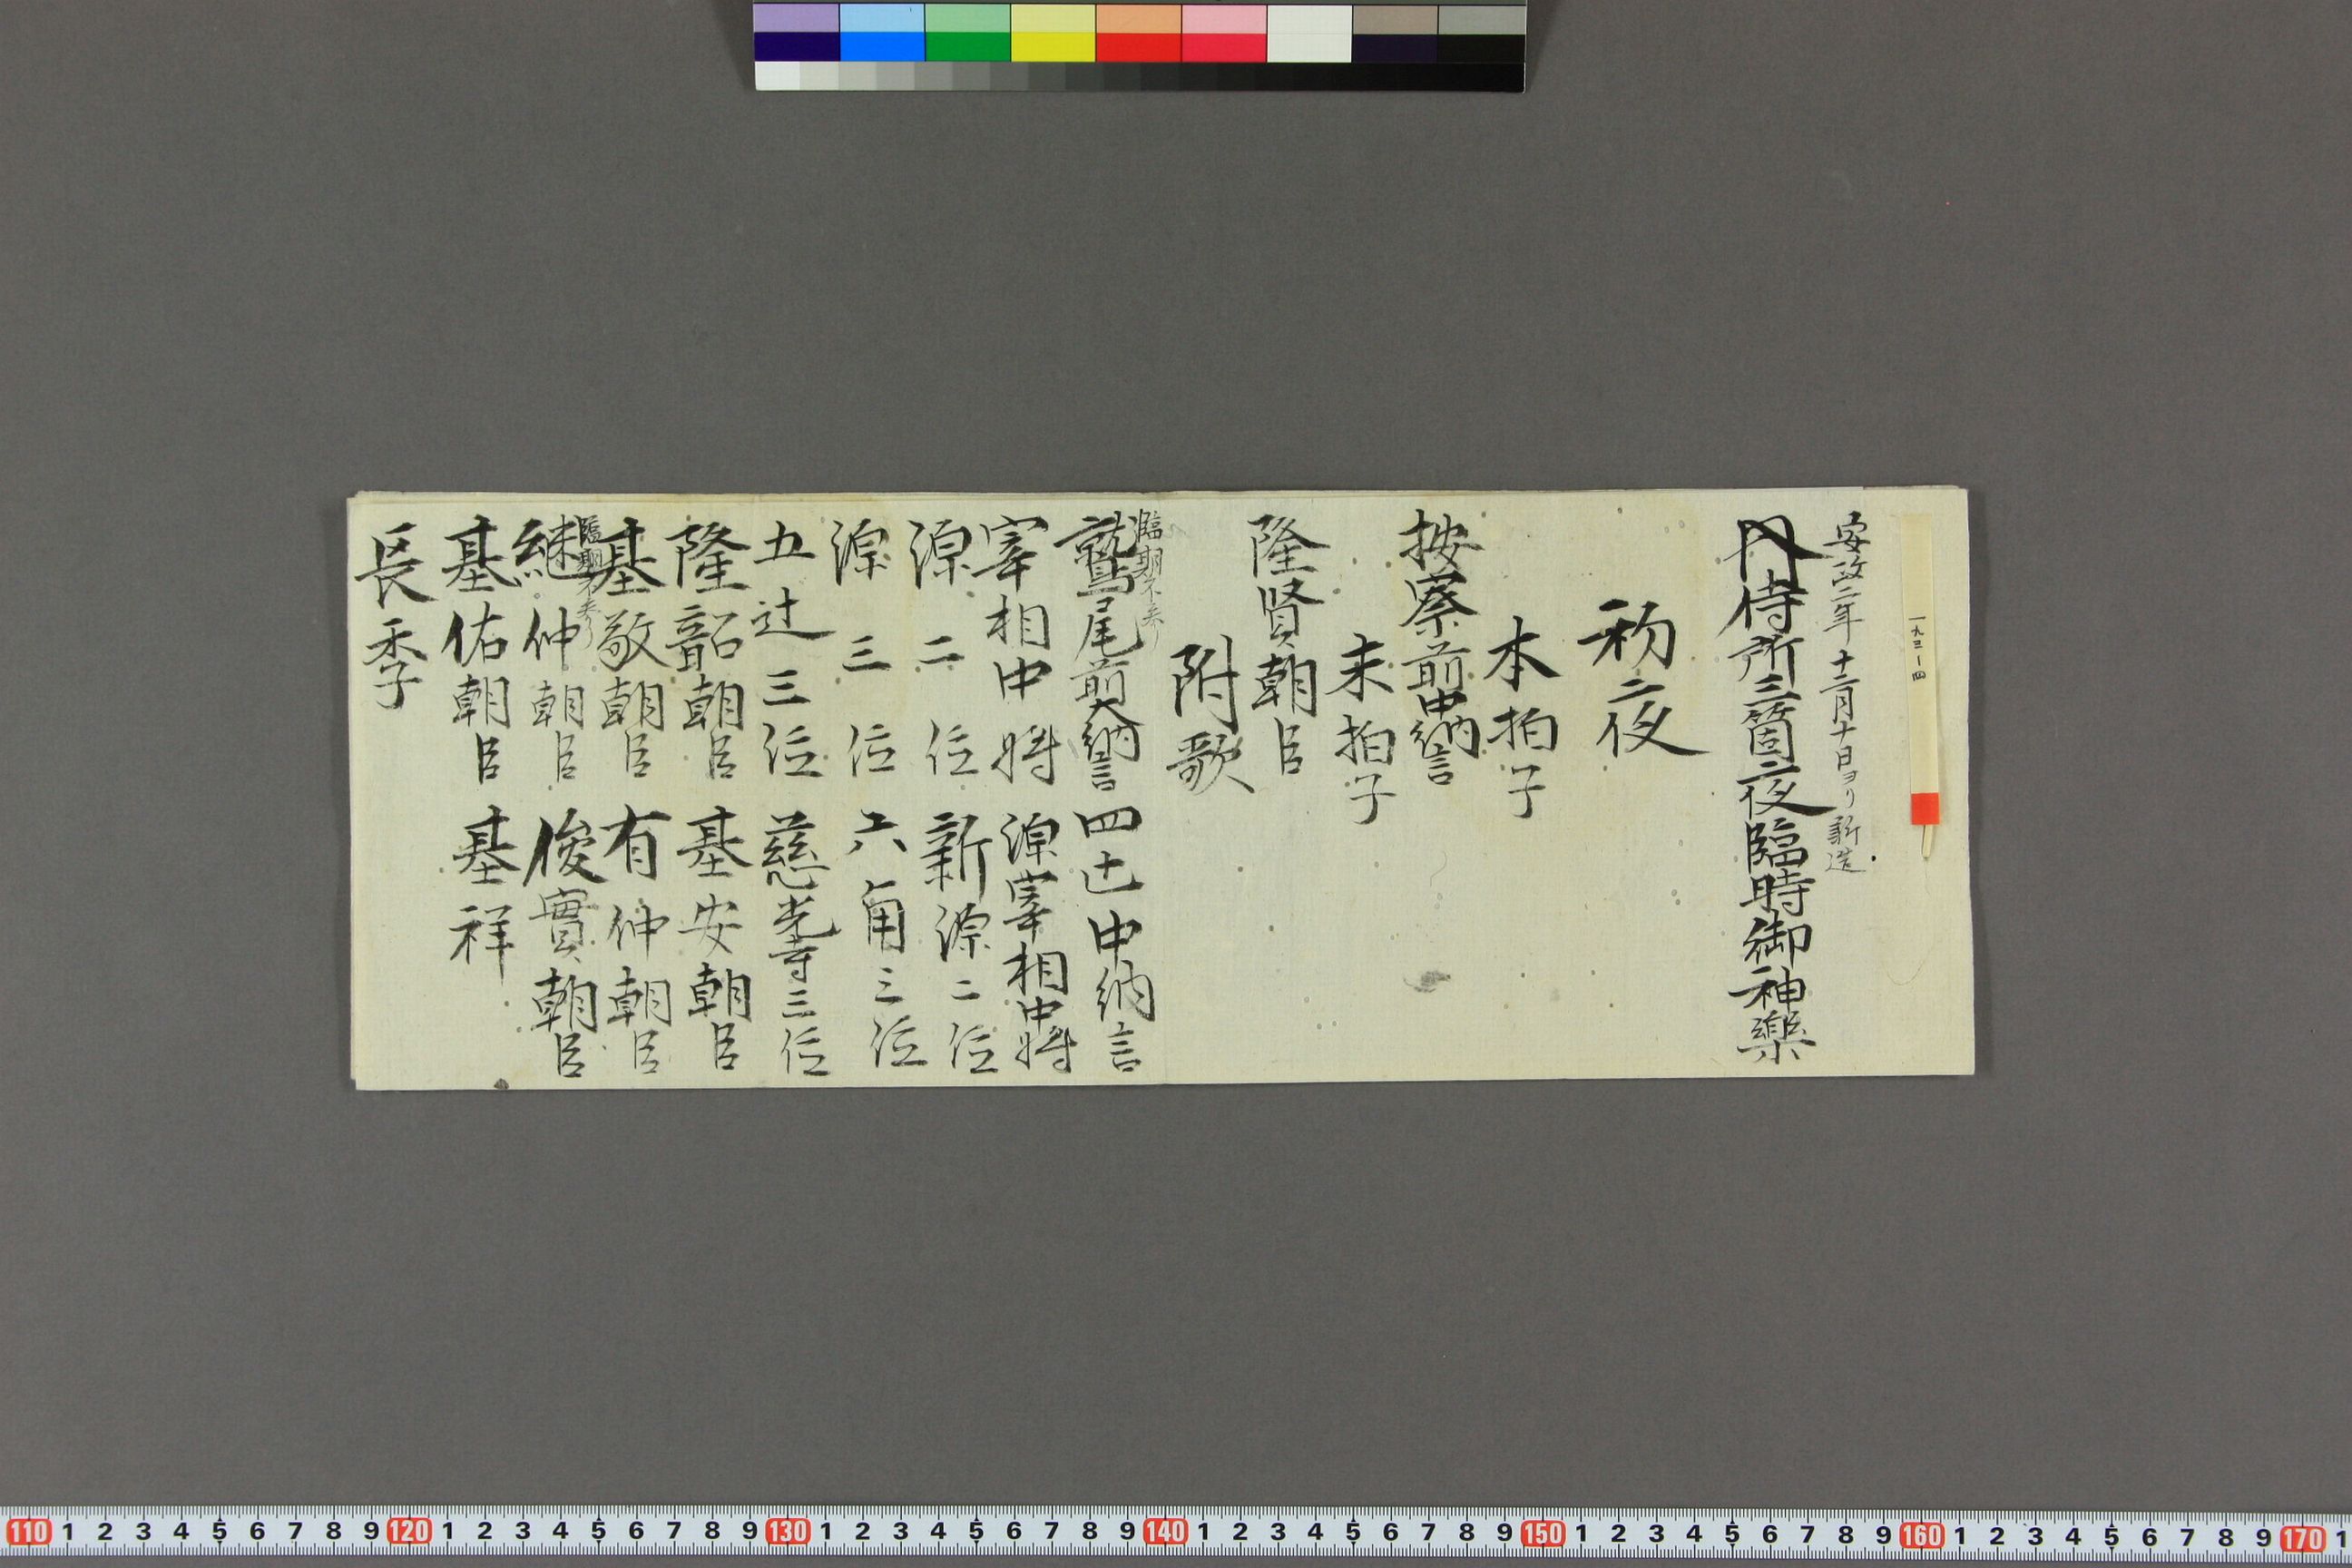 一九三ー四
安政二年十二月十日ヨリ新造
内侍所三箇夜臨時御神樂
初夜
本拍子
按察前中納言
末拍子
隆賢朝臣
附歌
臨期不参
鷲尾前大納言 四辻中納言
宰相中将 源宰相中将
源二位 新源二位
源三位 六角三位
五辻三位 慈光寺三位
隆韶朝臣 基安朝臣
基敬朝臣 有仲朝臣
臨期不参
継仲朝臣 俊實朝臣
基佑朝臣 基祥
長季
110 1 2 3 4 5 6 7 8 9 120 1 2 3 4 5 6 7 8 9 130 1 2 3 4 5 6 7 8 9 140 1 2 3 4 5 6 7 8 9 150 1 2 3 4 5 6 7 8 9 160 1 2 3 4 5 6 7 8 9 170 1